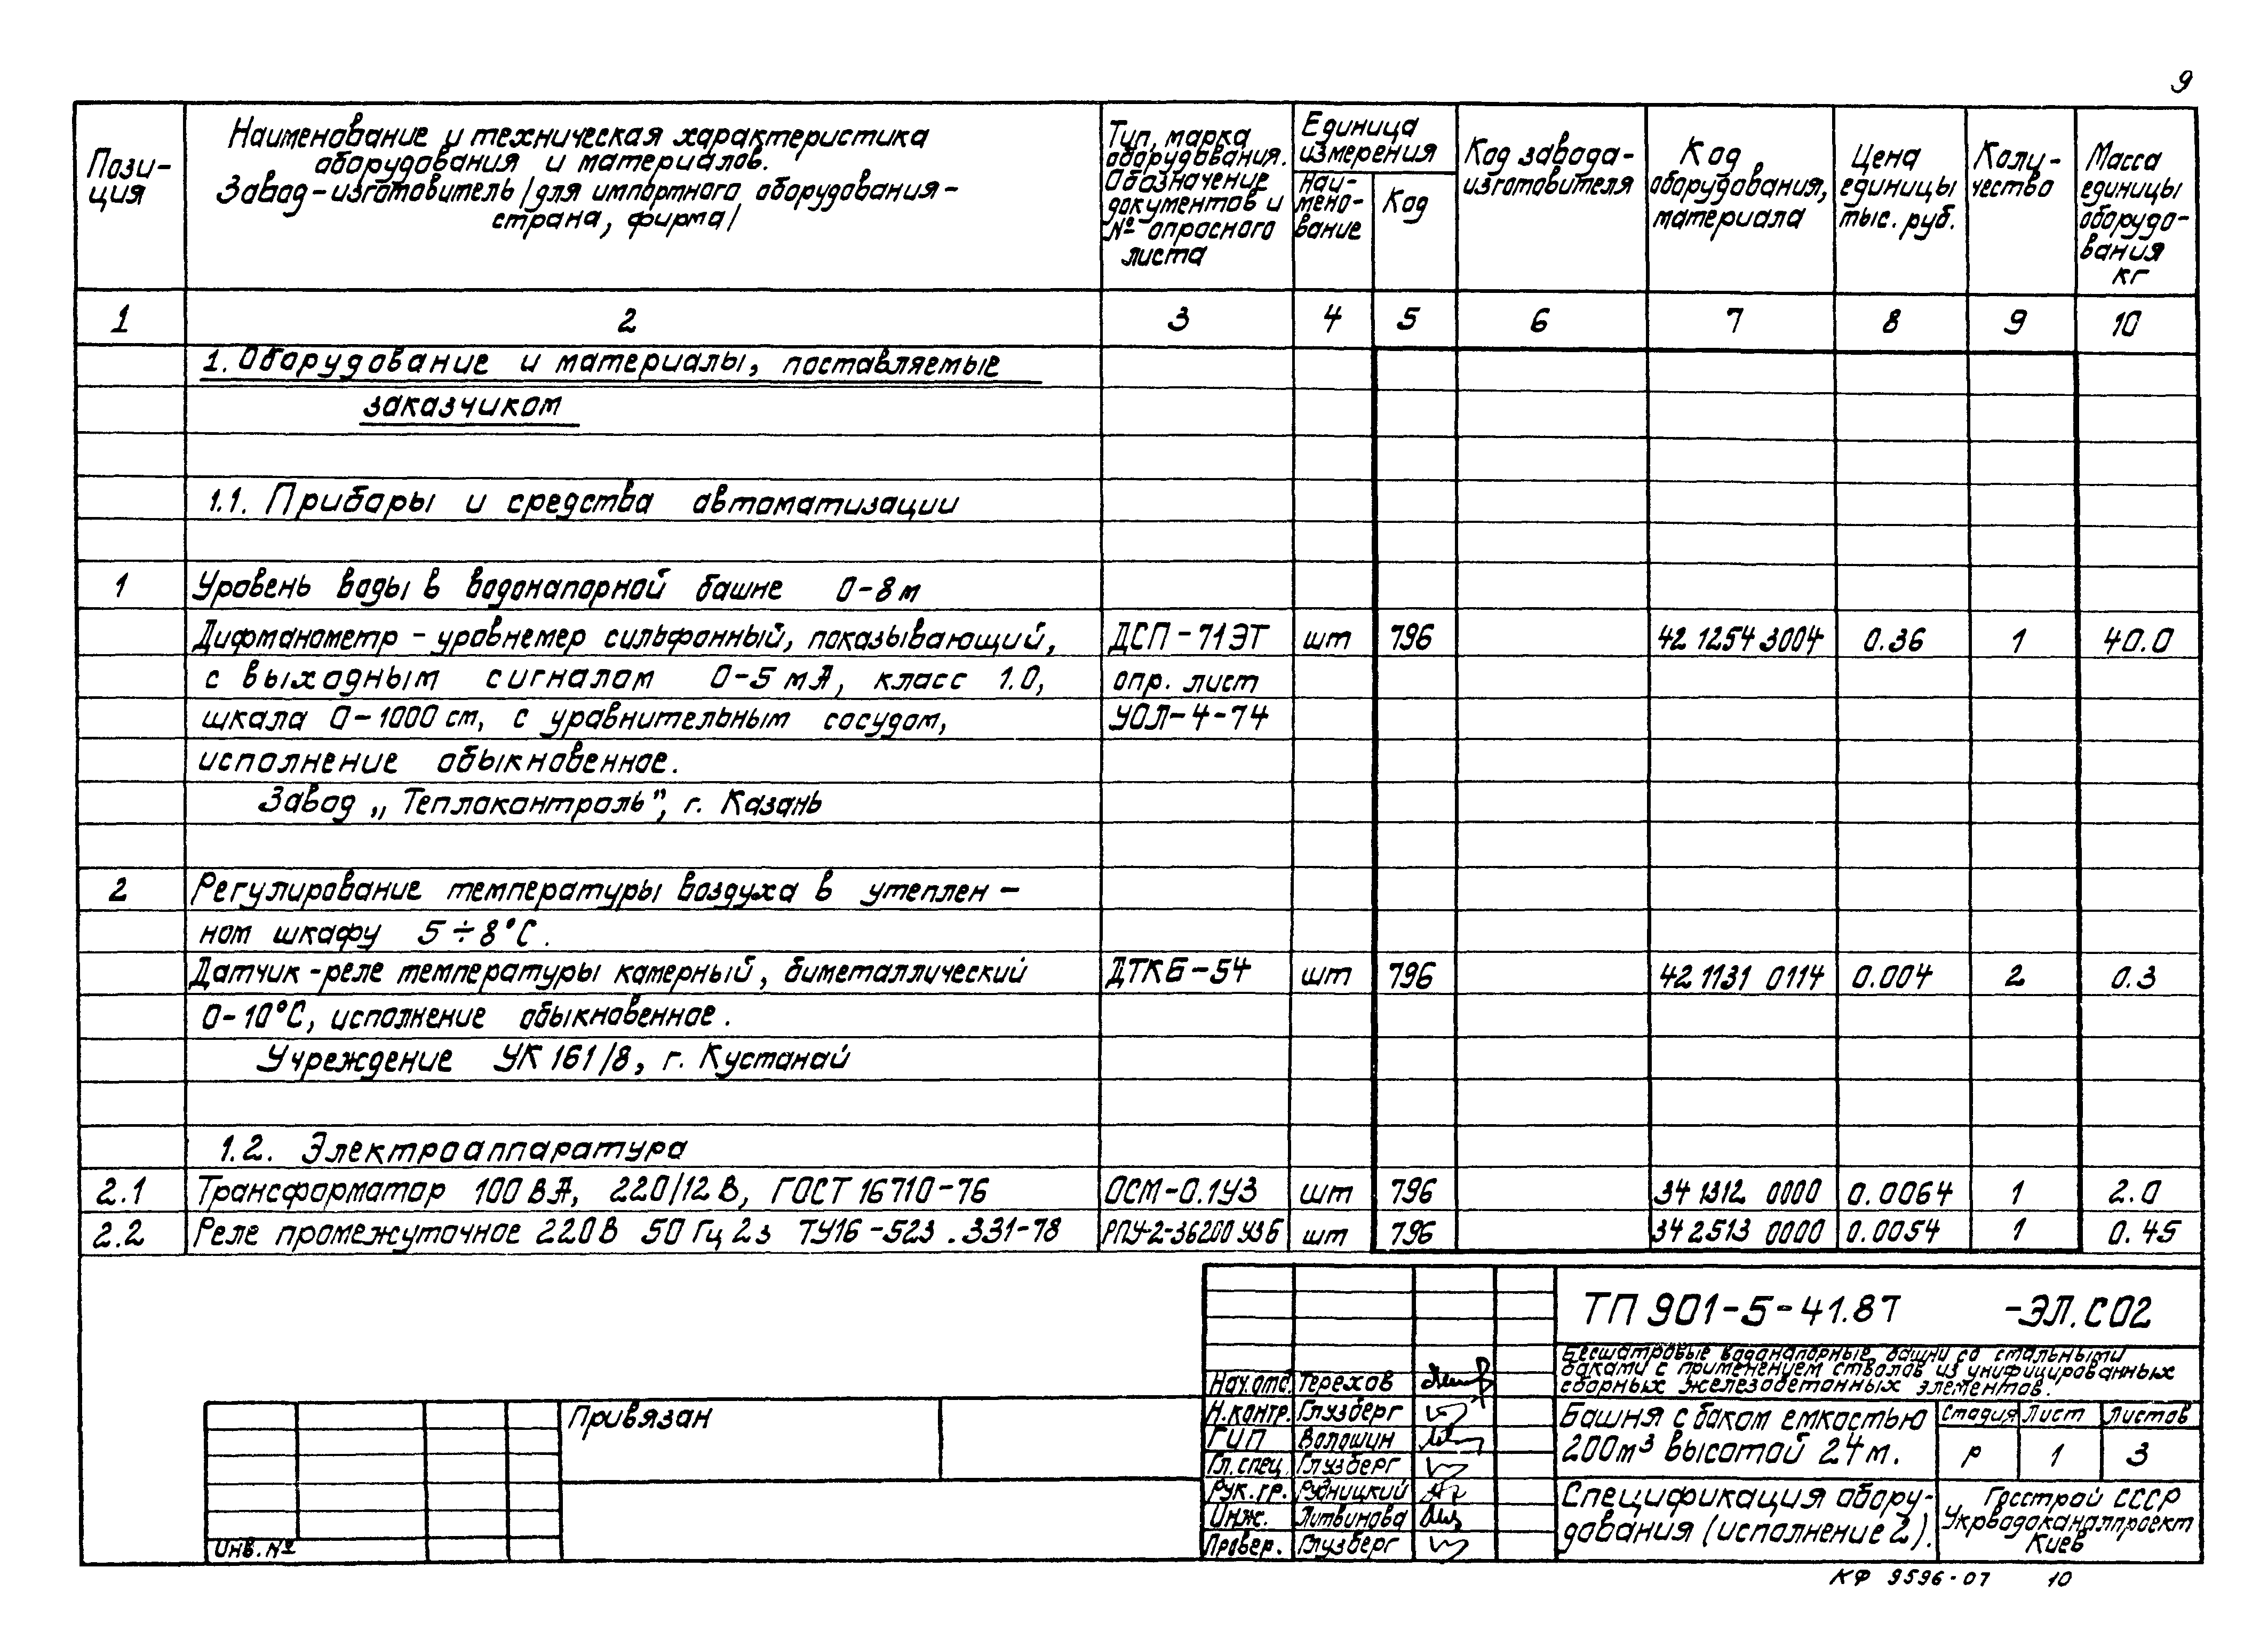 9
Пози-
ция
Наименование и техническая характеристика
оборудования и материалов.
Завод-изготовитель /для импортного оборудования-
страна, фирма/
Тип, марка
оборудования.
Обозначение
документов и
№ опросного
листа
Единица
измерения
Наи-
мено-
вание
Код
Код завода-
изготовителя
Код
оборудования,
материала
Цена
единицы
тыс. руб.
Коли-
чество
Масса
единицы
оборудо-
вания
кг
1 2 3 4 5 6 7 8 9 10
1. Оборудование и материалы, поставляемые
заказчиком
1.1. Приборы и средства автоматизации
1 Уровень воды в водонапорной башне 0-8м
Дифманометр - уровнемер сильфонный, показывающий, ДСП-71ЭТ шт 796 42 1254 3004 0.36 1 40.0
с выходным сигналом 0-5 мА, класс 1.0, опр. лист
шкала 0-1000 см, с уравнительным сосудом, УОЛ-4-74
исполнение обыкновенное.
Завод „Теплоконтроль", г. Казань
2 Регулирование температуры воздуха в утеплен-
ном шкафу 5÷8°С.
Датчик-реле температуры камерный, биметаллический ДТКБ-54 шт 796 42 1131 0114 0.004 2 0.3
0-10°С, исполнение обыкновенное.
Учреждение УК 161/8, г. Кустанай
1.2. Электроаппаратура
2.1 Трансформатор 100 ВА, 220/12 В, ГОСТ 16710-76 ОСМ-0.1У3 шт 796 34 1312 0000 0.0064 1 2.0
2.2 Реле промежуточное 220В 50 Гц 2з ТУ16-523.331-78 РПУ-2-36200 У3Б шт 796 34 2513 0000 0.0054 1 0.45
ТП 901-5-41.87 -ЭЛ.СО2
Бесшатровые водонапорные башни со стальными
баками с применением стволов из унифицированных
сборных железобетонных элементов.
Нач.отд. Терехов
Н.контр. Глузберг
ГИП Волошин
Гл.спец. Глузберг
Рук.гр. Рудницкий
Инж. Литвинова
Провер. Глузберг
Башня с баком емкостью
200м³ высотой 24м.
Стадия Лист Листов
Р 1 3
Спецификация обору-
дования (исполнение 2).
Госстрой СССР
Укрводоканалпроект
Киев
Привязан
Инв.№
КФ 9596-07 10